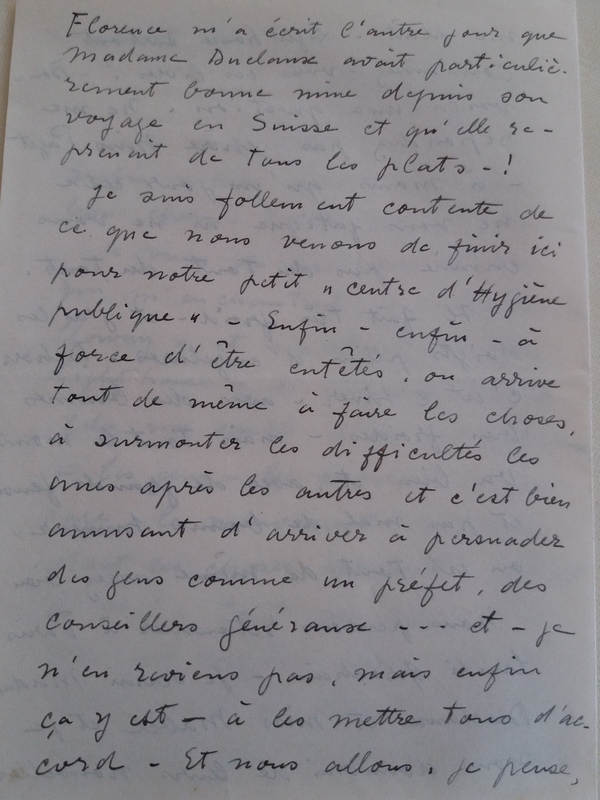 Florence m'a écrit l'autre jour que
Madame Duclaux avait particuliè-
rement bonne mine depuis son
voyage en Suisse et qu'elle re-
prenait de tous les plats - !
Je suis follement contente de
ce que nous venons de finir ici
pour notre petit " centre d'Hygiène
publique " - Enfin - enfin - à
force d'être entêtés, on arrive
tout de même à faire les choses,
à surmonter les difficultés les
unes après les autres et c'est bien
amusant d'arriver à persuader
des gens comme un préfet, des
conseillers généraux --- et - je
n'en reviens pas, mais enfin
ça y est - à les mettre tous d'ac-
cord - Et nous allons, je pense,